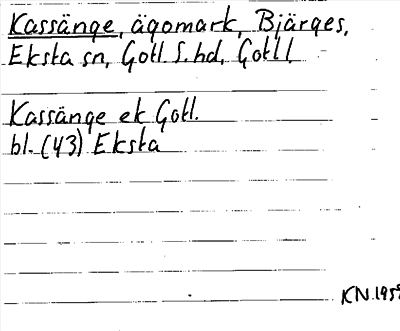 Kassänge, ägomark, Bjärges,
Eksta sn, Gotl. S. hd, Gotl l,
Kassänge ek Gotl.
bl. (43) Eksta
KN.195